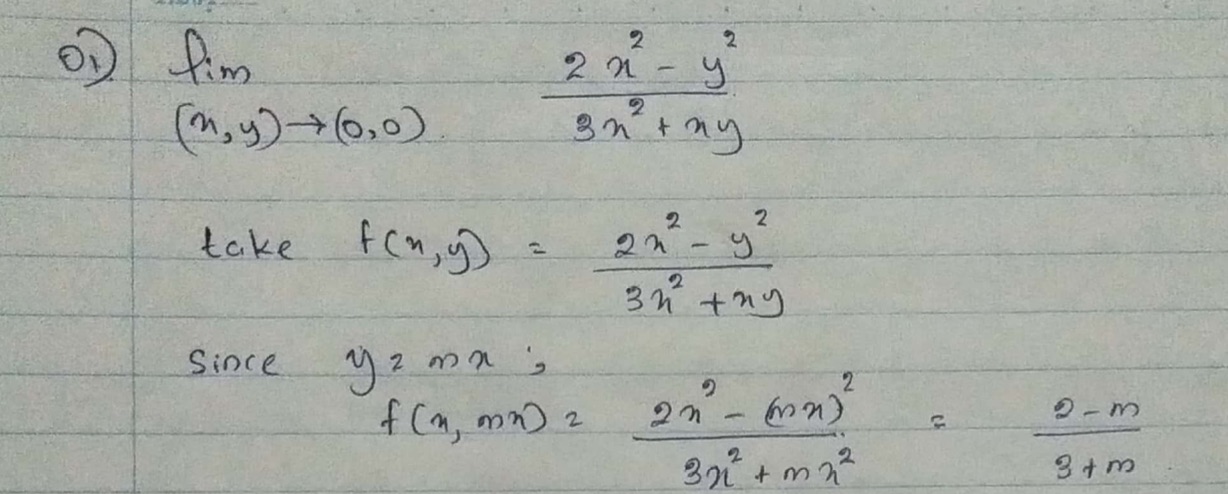 01) lim 2x² - y²
(x,y)→(0,0) 3x² + xy
take f(x,y) = 2x² - y²
3x² + xy
since y = mx ;
f(x, mx) = 2x² - (mx)² = 2-m
3x² + mx² 3+m